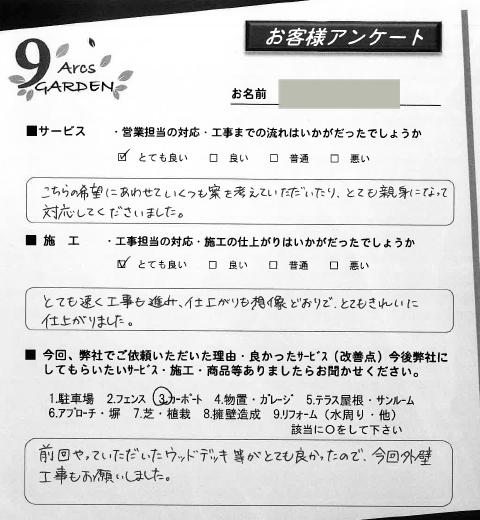 お客様アンケート
9 Arcs
GARDEN
お名前
■サービス ・営業担当の対応・工事までの流れはいかがだったでしょうか
☑ とても良い □ 良い □ 普通 □ 悪い
こちらの希望にあわせていくつも案を考えていただいたり、とても親身になって
対応してくださいました。
■ 施 工 ・工事担当の対応・施工の仕上がりはいかがだったでしょうか
☑ とても良い □ 良い □ 普通 □ 悪い
とても速く工事も進み、仕上がりも想像どおりで、とてもきれいに
仕上がりました。
■ 今回、弊社でご依頼いただいた理由・良かったｻｰﾋﾞｽ（改善点）今後弊社に
してもらいたいｻｰﾋﾞｽ・施工・商品等ありましたらお聞かせください。
1.駐車場 2.フェンス 3.カーポート 4.物置・ガレージ 5.テラス屋根・サンルーム
6.アプローチ・塀 7.芝・植栽 8.擁壁造成 9.リフォーム（水周り・他）
該当に〇をして下さい
前回やっていただいたウッドデッキ等がとても良かったので、今回外壁
工事もお願いしました。